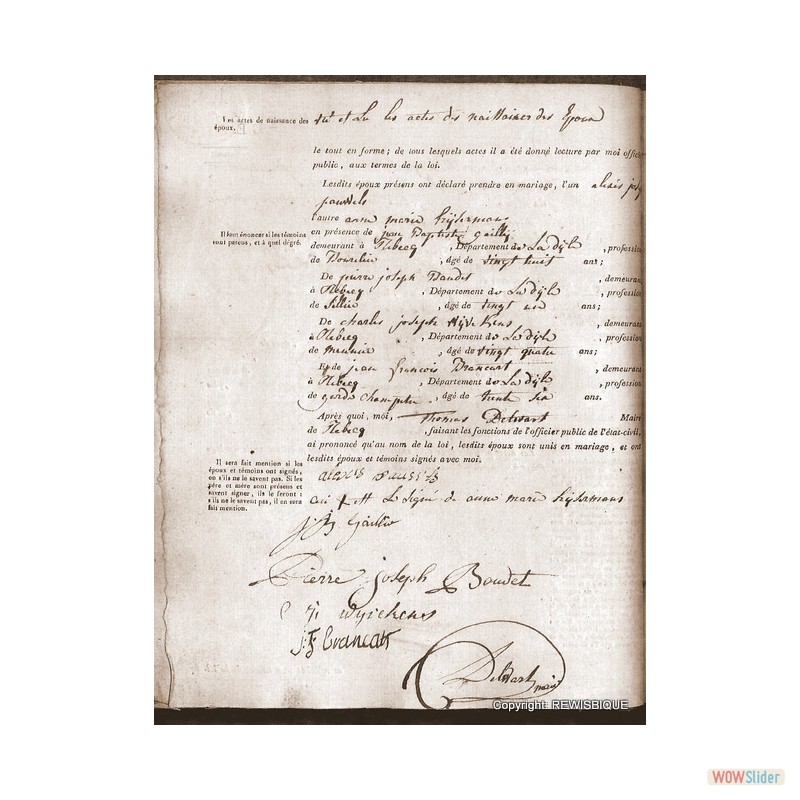 Les actes de naissance des époux.
vu et Lu les actes des naissances des Epoux
le tout en forme ; de tous lesquels actes il a été donné lecture par moi officier
public, aux termes de la loi.
Lesdits époux présens ont déclaré prendre en mariage, l'un alexis
pauwels
l'autre anne marie
Il faut énoncer si les témoins
sont parens, et à quel dégré.
en présence de jean Baptiste
demeurant à Rebecq , Département de La dÿle , profession
de , âgé de vingt huit ans ;
De pierre joseph Baudet , demeurant
à Rebecq , Département de La dÿle , profession
de Sellier , âgé de vingt ans ;
De charles joseph , demeurant
à Rebecq , Département de La dÿle , profession
de meunier , âgé de vingt quatre ans ;
Et de jean françois Brancart , demeurant
à Rebecq , Département de La dÿle , profession
de garde champêtre , âgé de trente six ans.
Après quoi, moi, Thomas Delwart Maire
de Rebecq , faisant les fonctions de l'officier public de l'état-civil,
ai prononcé qu'au nom de la loi, lesdits époux sont unis en mariage, et ont
lesdits époux et témoins signés avec moi.
Il sera fait mention si les
époux et témoins ont signés,
ou s'ils ne le savent pas. Si les
père et mère sont présens et
savent signer, ils le feront :
s'ils ne le savent pas, il en sera
fait mention.
alexis
Le signé de anne marie
Pierre joseph Boudet
Wyickens
j: f Brancart
Delwart maire
Copyright: REWISBIQUE
WOWSlider